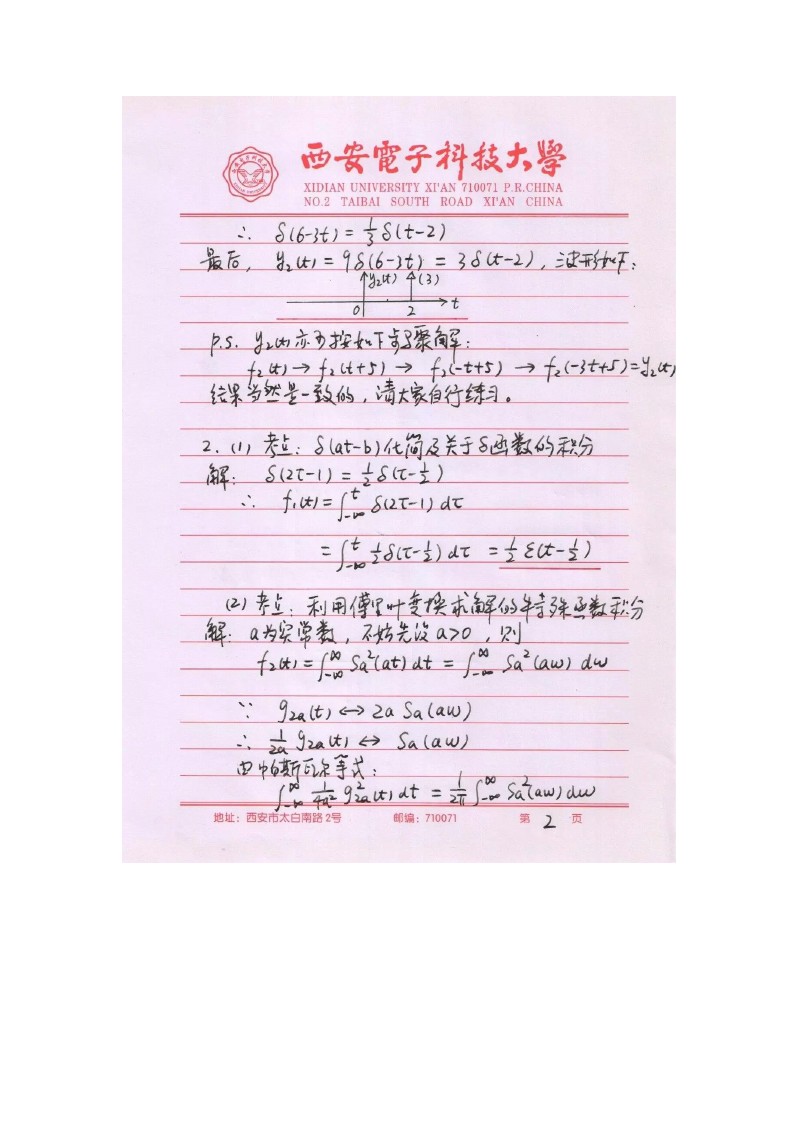 西安電子科技大學
XIDIAN UNIVERSITY XI'AN 710071 P.R.CHINA
NO.2 TAIBAI SOUTH ROAD XI'AN CHINA
∴ δ(6-3t) = 1/3 δ(t-2)
最后, y₂(t) = 9δ(6-3t) = 3δ(t-2), 波形如下:
y₂(t) (3)
0 2 t
P.S. y₂(t)亦可按如下步骤求解:
f₂(t) → f₂(t+5) → f₂(-t+5) → f₂(-3t+5)=y₂(t)
结果当然是一致的,请大家自行练习。
2. (1) 考点: δ(at-b)化简及关于δ函数的积分
解: δ(2τ-1) = 1/2 δ(τ-1/2)
∴ f₁(t) = ∫_{-∞}^{t} δ(2τ-1) dτ
= ∫_{-∞}^{t} 1/2 δ(τ-1/2) dτ = 1/2 ε(t-1/2)
(2) 考点: 利用傅里叶变换求解的特殊函数积分
解: a为实常数, 不妨先设a>0, 则
f₂(t) = ∫_{-∞}^{∞} Sa²(at) dt = ∫_{-∞}^{∞} Sa²(aω) dω
∵ g₂ₐ(t) ↔ 2a Sa(aω)
∴ 1/2a g₂ₐ(t) ↔ Sa(aω)
由帕斯瓦尔等式:
∫_{-∞}^{∞} 1/4a² g²₂ₐ(t) dt = 1/2π ∫_{-∞}^{∞} Sa²(aω) dω
地址: 西安市太白南路2号 邮编: 710071 第 2 页